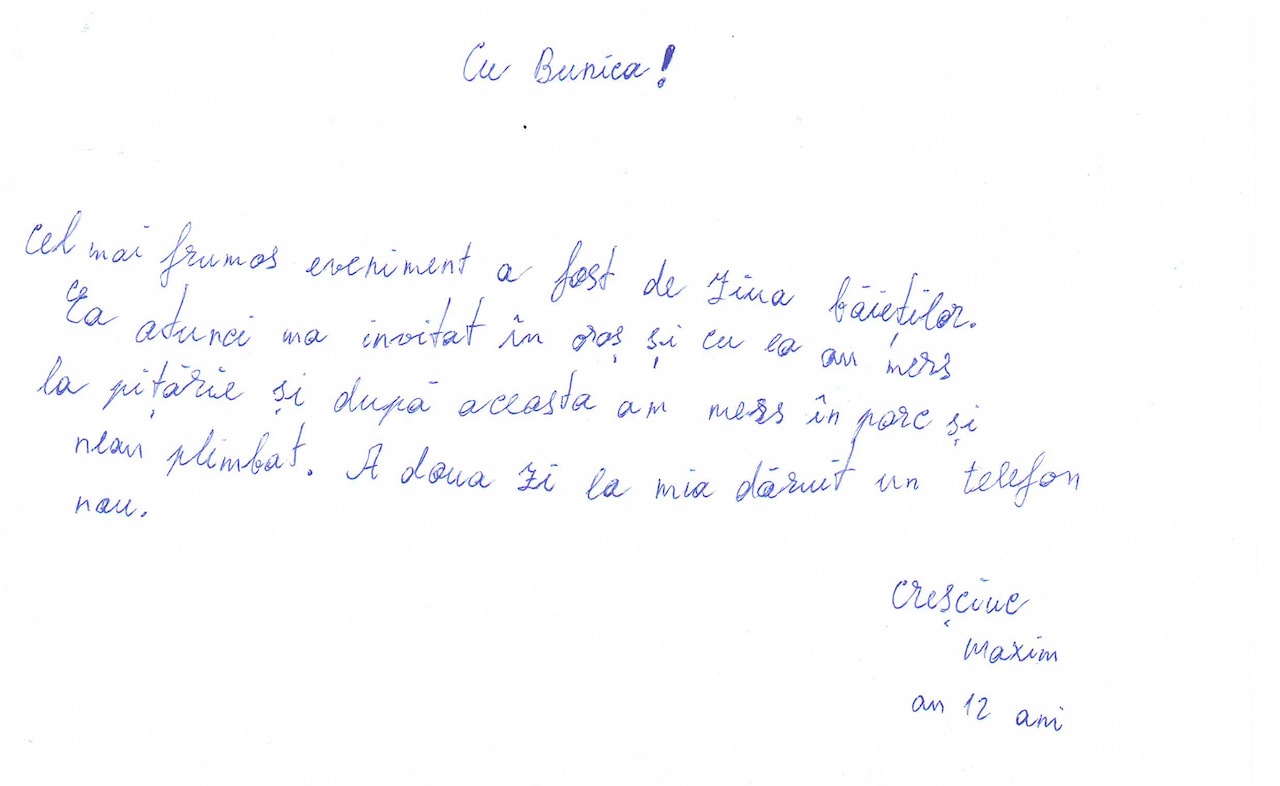 Cu Bunica!
Cel mai frumos eveniment a fost de ziua băieților.
Ea atunci ma invitat în oraș și cu ea am mers
la pițărie și după aceasta am mers în parc și
neam plimbat. A doua zi ea mia dăruit un telefon
nou.
Creșciuc
Maxim
am 12 ani